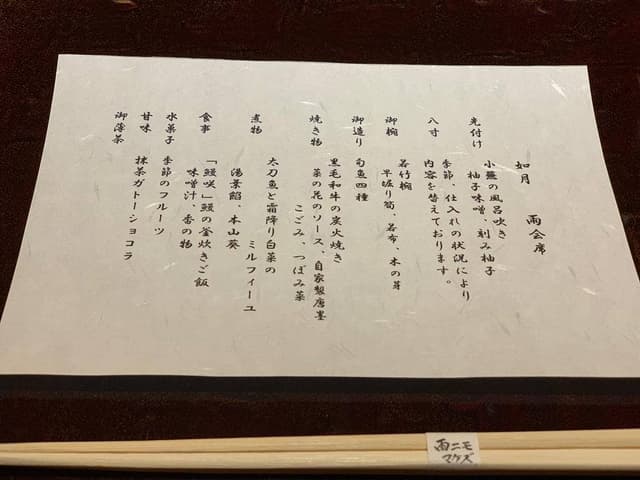 如月　雨会席
先付け
小蕪の風呂吹き
柚子味噌、刻み柚子
八寸
季節、仕入れの状況により
内容を替えております。
御椀
若竹椀
早堀り筍、若布、木の芽
御造り
旬魚四種
焼き物
黒毛和牛の炭火焼き
菜の花のソース、自家製唐墨
こごみ、つぼみ菜
煮物
太刀魚と霜降り白菜の
ミルフィーユ
湯葉餡、本山葵
食事
「鰻咲」鰻の釜炊きご飯
味噌汁、香の物
水菓子
季節のフルーツ
甘味
抹茶ガトーショコラ
御薄茶
雨ニモ
マケズ